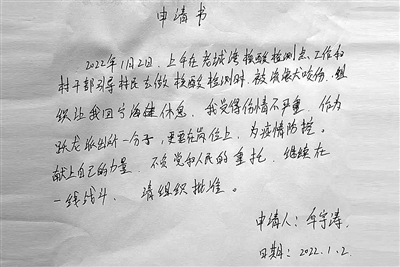 申请书
2022年1月2日,上午在老城湾核酸检测点工作和
村干部引导村民去做核酸检测时,被流浪犬咬伤,组
织让我回宁海健休息,我觉得伤情不严重,作为
跃龙派出所一分子,更要在岗位上,为疫情防控
献上自己的力量,不负党和人民的重托,继续在
一线战斗,请组织批准。
申请人:牟宇涛,
日期:2022.1.2.